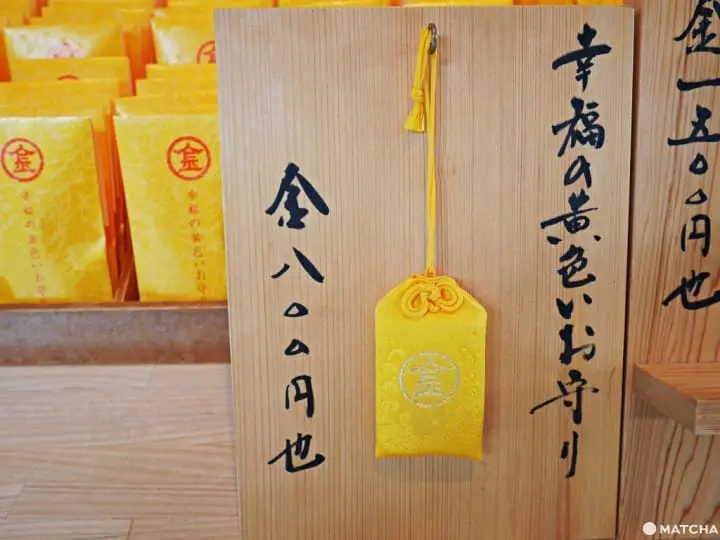 金一五〇〇円也
幸福の黄色いお守り
金八〇〇円也
金
金
幸福の黄色いお守り
金
幸福の黄色いお守
MATCHA